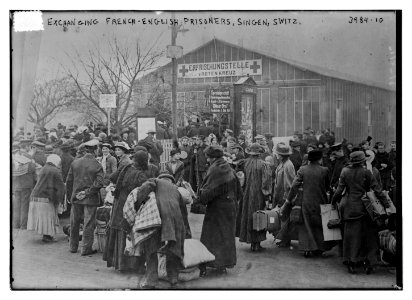 EXCHANGING FRENCH-ENGLISH, PRISONERS, SINGEN, SWITZ. 3984-10
ERFRISCHUNGSTELLE
VOM ROTEN KREUZ